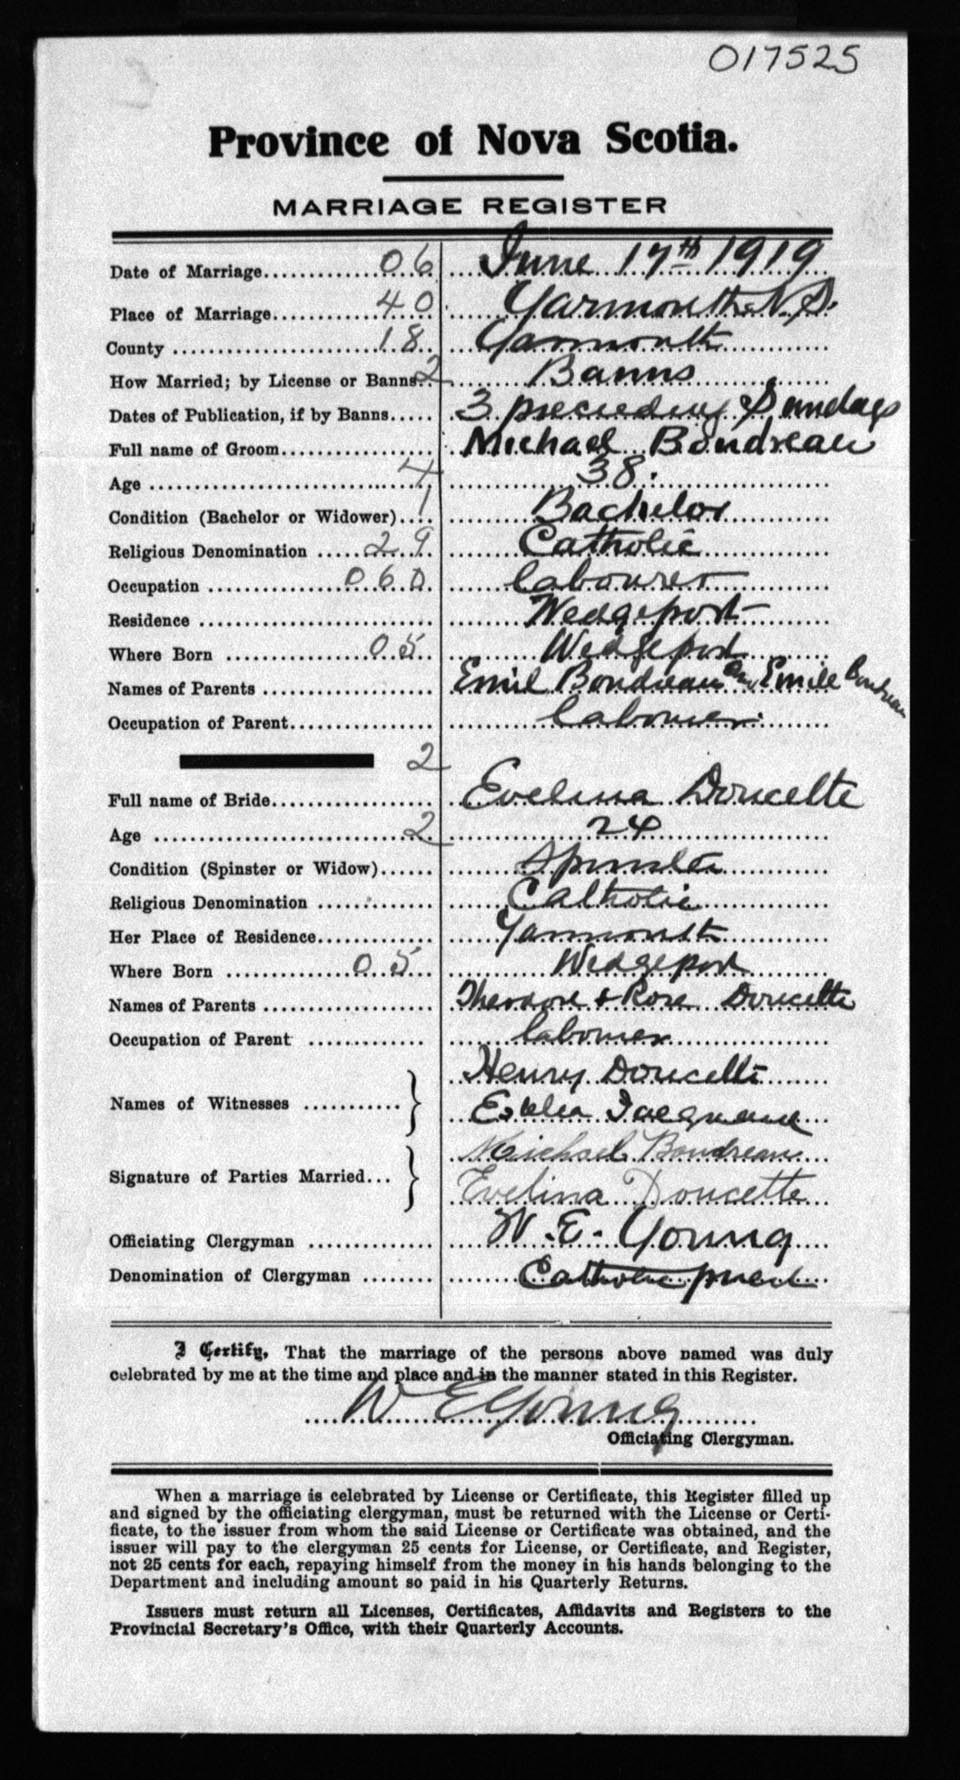 017525
Province of Nova Scotia.
MARRIAGE REGISTER
Date of Marriage 06 June 17th 1919
Place of Marriage 40 Yarmouth N.S.
County 18 Yarmouth
How Married; by License or Banns 2 Banns
Dates of Publication, if by Banns 3 preceeding Sundays
Full name of Groom Michael Boudreau
Age 4 38.
Condition (Bachelor or Widower) 1 Bachelor
Religious Denomination 29 Catholic
Occupation 060 labourer
Residence Wedgeport
Where Born 05 Wedgeport
Names of Parents Emil Boudreau and Emile Boudreau
Occupation of Parent labourer
2
Full name of Bride Evelina Doucette
Age 2 24
Condition (Spinster or Widow) Spinster
Religious Denomination Catholic
Her Place of Residence Yarmouth
Where Born 05 Wedgeport
Names of Parents Theodore & Rose Doucette
Occupation of Parent labourer
Names of Witnesses Henry Doucette
Signature of Parties Married Michael Boudreau
Evelina Doucette
Officiating Clergyman W. E. Young
Denomination of Clergyman Catholic priest
I Certify, That the marriage of the persons above named was duly
celebrated by me at the time and place and in the manner stated in this Register.
W E Young
Officiating Clergyman.
When a marriage is celebrated by License or Certificate, this Register filled up
and signed by the officiating clergyman, must be returned with the License or Certi-
ficate, to the issuer from whom the said License or Certificate was obtained, and the
issuer will pay to the clergyman 25 cents for License, or Certificate, and Register,
not 25 cents for each, repaying himself from the money in his hands belonging to the
Department and including amount so paid in his Quarterly Returns.
Issuers must return all Licenses, Certificates, Affidavits and Registers to the
Provincial Secretary's Office, with their Quarterly Accounts.